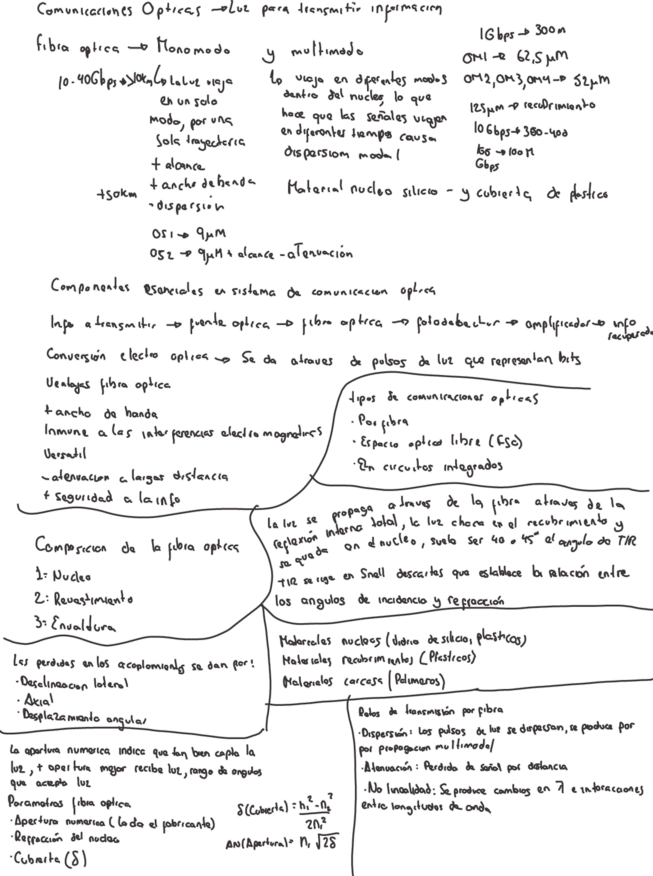 Comunicaciones Opticas → Luz para transmitir informacion
fibra optica → Monomodo y multimodo
10-40Gbps → >10km
La Luz viaja
en un solo
modo, por una
Sola trayectoria
+ alcance
+ ancho de banda
- dispersión
+50km
OS1 → 9µM
OS2 → 9µM + alcance - aTenuación
Lo viaja en diferentes modos
dentro del nucleo, lo que
hace que las señales viajen
en diferentes tiempo causa
dispersiom modal
1Gbps → 300m
OM1 → 62,5µM
OM2, OM3, OM4 → 52µM
125µm → recubrimiento
10Gbps → 300-400
100 → 100M
Gbps
Material nucleo silicio - y cubierta de plastico
Componentes esenciales en sistema de comunicacion optica
Info a transmitir → fuente optica → fibra optica → fotodetector → amplificador → info
recuperada
Conversión electro optica → Se da atraves de pulsos de luz que representan bits
Ventajas fibra optica
+ ancho de banda
Inmune a las interferencias electro magneticas
Versatil
- atenuacion a largas distancia
+ seguridad a la info
tipos de comunicaciones opticas
· Por fibra
· Espacio optico libre (FSO)
· En circuitos integrados
Composicion de la fibra optica
1: Nucleo
2: Revestimiento
3: Envoltura
La luz se propaga atraves de la fibra atraves de la
reflexión interna total, la luz choca en el recubrimiento y
se queda en el nucleo, suele ser 40 o 45° el angulo de TIR
TIR se rige en Snell descartes que establece la relación entre
los angulos de incidencia y refracción
Materiales nucleos (vidrio de silicio, plasticos)
Materiales recubrimientos (Plasticos)
Materiales carcasa (Polimeros)
Las perdidas en los acoplamientos se dan por:
· Desalineacion lateral
· Axial
· Desplazamiento angular
La apertura numerica indica que tan bien capta la
luz, + apertura mejor recibe luz, rango de angulos
que acepta luz
Parametros fibra optica
· Apertura numerica (la da el fabricante)
· Refracción del nucleo
· Cubierta (δ)
δ(Cubierta) = n₁² - n₂² / 2n₁²
AN(Apertura) = n₁ √2δ
Retos de transmisión por fibra
· Dispersión: Los pulsos de luz se dispersan, se produce por
por propagacion multimodal
· Atenuación: Perdida de señal por distancia
· No linealidad: Se produce cambios en λ e interacciones
entre longitudes de onda